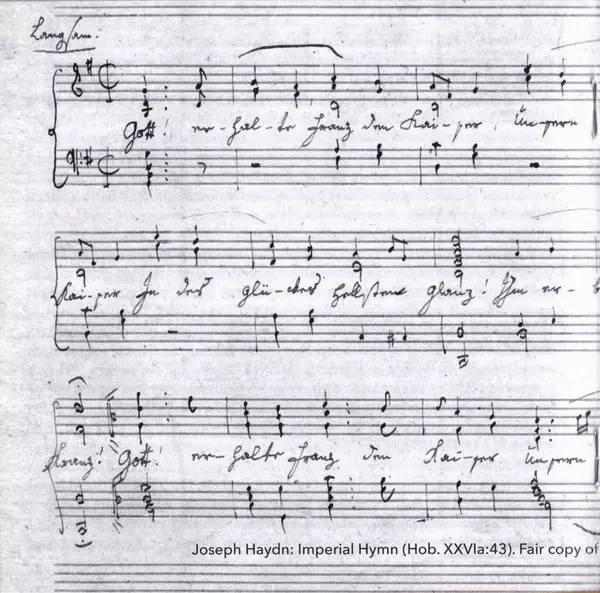 Langsam:
Gott! er-hal-te Franz den Kai-ser, Unsern
Kai-ser In des Glü-ckes hellsten Glanz! Ihm er-
Kranz! Gott! er-halte Franz den Kai-ser Unsern
Joseph Haydn: Imperial Hymn (Hob. XXVIa:43). Fair copy of